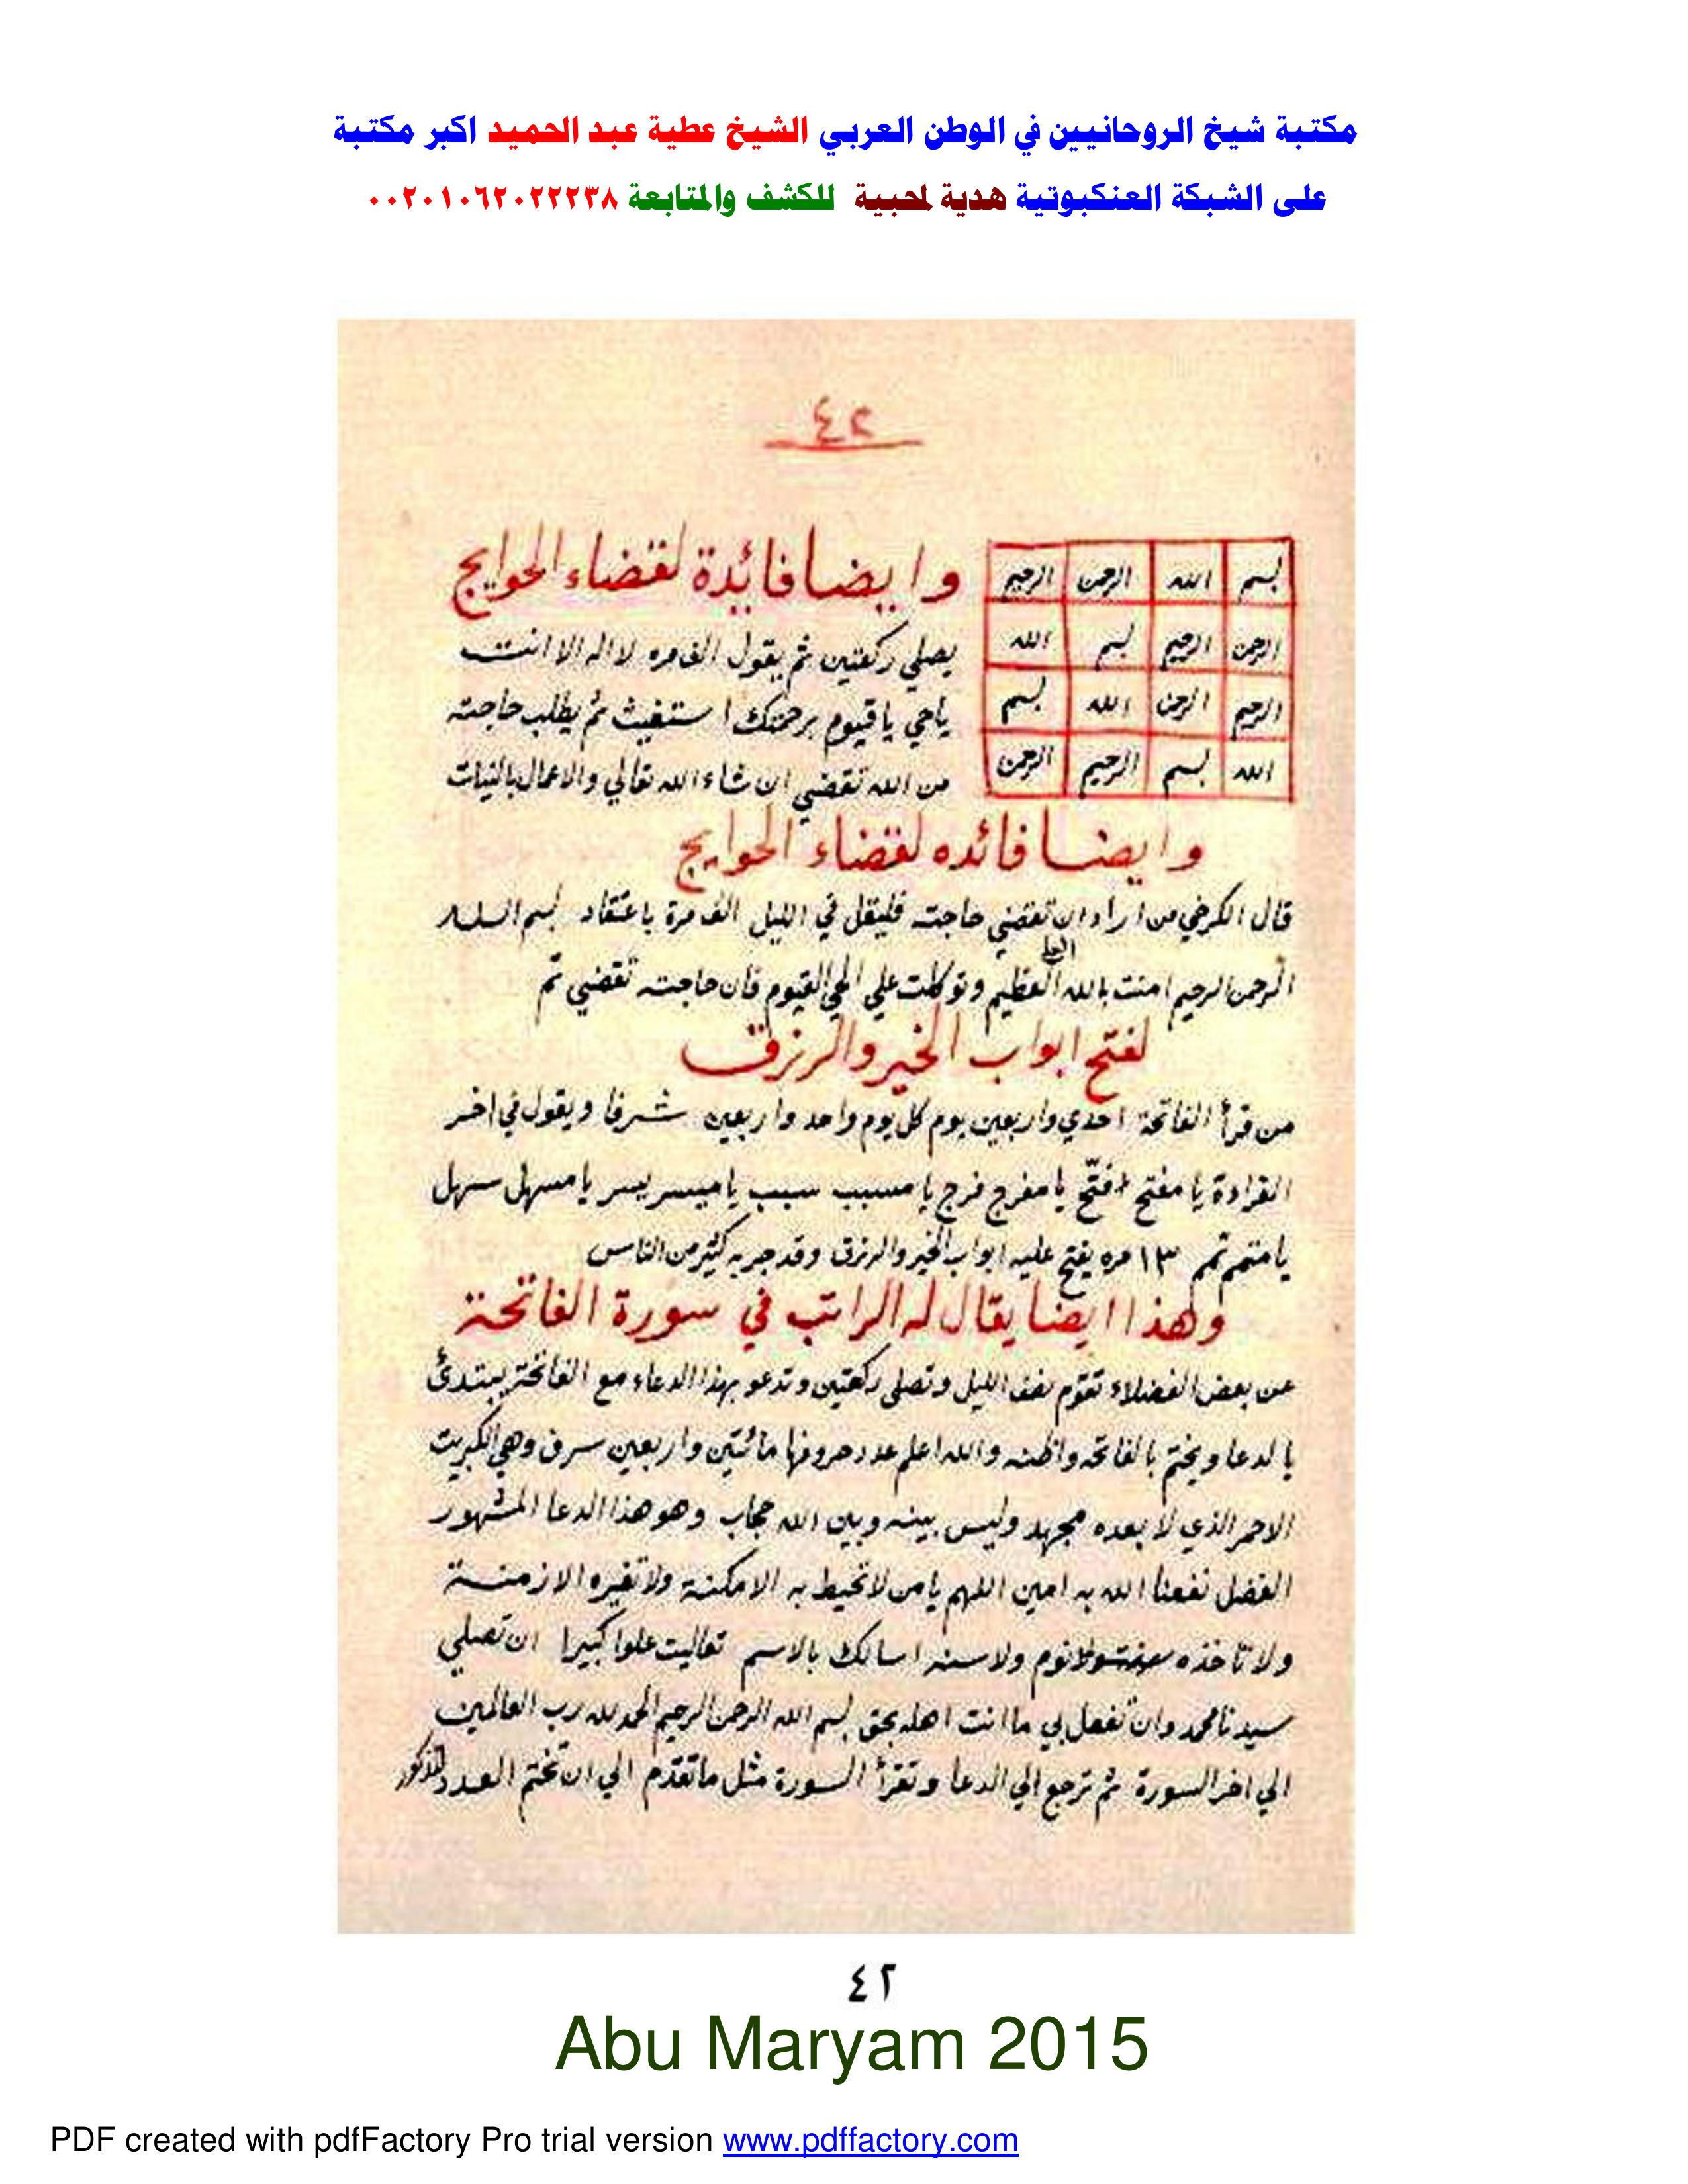 مكتبة شيخ الروحانيين في الوطن العربي الشيخ عطية عبد الحميد اكبر مكتبة
على الشبكة العنكبوتية هدية لمحبية للكشف والمتابعة ٠٠٢٠١٠٦٢٠٢٢٢٣٨
٤٢
بسم الله الرحمن الرحيم
الرحمن الرحيم بسم الله
الرحيم الرحمن الله بسم
الله بسم الرحيم الرحمن
وايضا فائدة لقضاء الحوايج
يصلي ركعتين ثم يقول الف مره لا اله الا انت
ياحي ياقيوم برحمتك استغيث ثم يطلب حاجته
من الله تقضي ان شاء الله تعالي والاعمال بالنيات
وايضا فائده لقضاء الحوايج
قال الكرخي من اراد ان تقضي حاجته فليقل في الليل الف مرة باعتقاد بسم الله
الرحمن الرحيم امنت بالله العلي العظيم وتوكلت علي الحي القيوم فان حاجته تقضي تم
لفتح ابواب الخير والرزق
من قرأ الفاتحة احدي واربعين يوم كل يوم واحد واربعين شرفا ويقول في اخر
القراءة يا مفتح افتح يا مفرج فرج يا مسبب سبب يا ميسر يسر يا مسهل سهل
يا متمم تمم ١٣ مره يفتح عليه ابواب الخير والرزق وقد جربه كثير من الناس
وهذا ايضا يقال له الراتب في سورة الفاتحة
عن بعض الفضلاء تقوم نصف الليل وتصلي ركعتين وتدعو بهذا الدعاء مع الفاتحة يبتدئ
بالدعا ويختم بالفاتحه واظنه والله اعلم عدد حروفها مائتين واربعين سرف وهي الكبريت
الاحمر الذي لا بعده مجهد وليس بينه وبين الله حجاب وهو هذا الدعا المشهور
الفضل نفعنا الله به امين اللهم يا من لا تحيط به الامكنة ولا تغيره الازمنة
ولا تاخذه نوم ولا سنه اسالك بالاسم تعاليت علوا كبيرا ان تصلي
سيدنا محمد وان تفعل بي ما انت اهله بحق بسم الله الرحمن الرحيم الحمد لله رب العالمين
الي اخر السورة ثم ترجع الي الدعا وتقرأ السورة مثل ما تقدم الي ان تختم العدد المذكور
٤٢
Abu Maryam 2015
PDF created with pdfFactory Pro trial version www.pdffactory.com